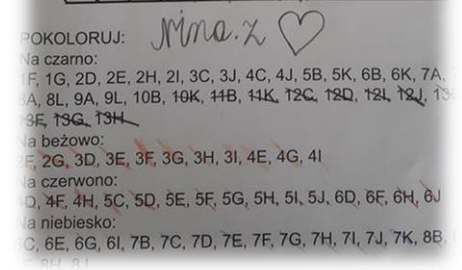 POKOLORUJ: Nina.z
Na czarno:
1F, 1G, 2D, 2E, 2H, 2I, 3C, 3J, 4C, 4J, 5B, 5K, 6B, 6K, 7A,
8A, 8L, 9A, 9L, 10B, 10K, 11B, 11K, 12C, 12D, 12I, 12J,
13F, 13G, 13H
Na beżowo:
2F, 2G, 3D, 3E, 3F, 3G, 3H, 3I, 4E, 4G, 4I
Na czerwono:
4D, 4F, 4H, 5C, 5D, 5E, 5F, 5G, 5H, 5I, 5J, 6D, 6F, 6H, 6J
Na niebiesko:
6C, 6E, 6G, 6I, 7B, 7C, 7D, 7E, 7F, 7G, 7H, 7I, 7J, 7K, 8B,
8H, 8J